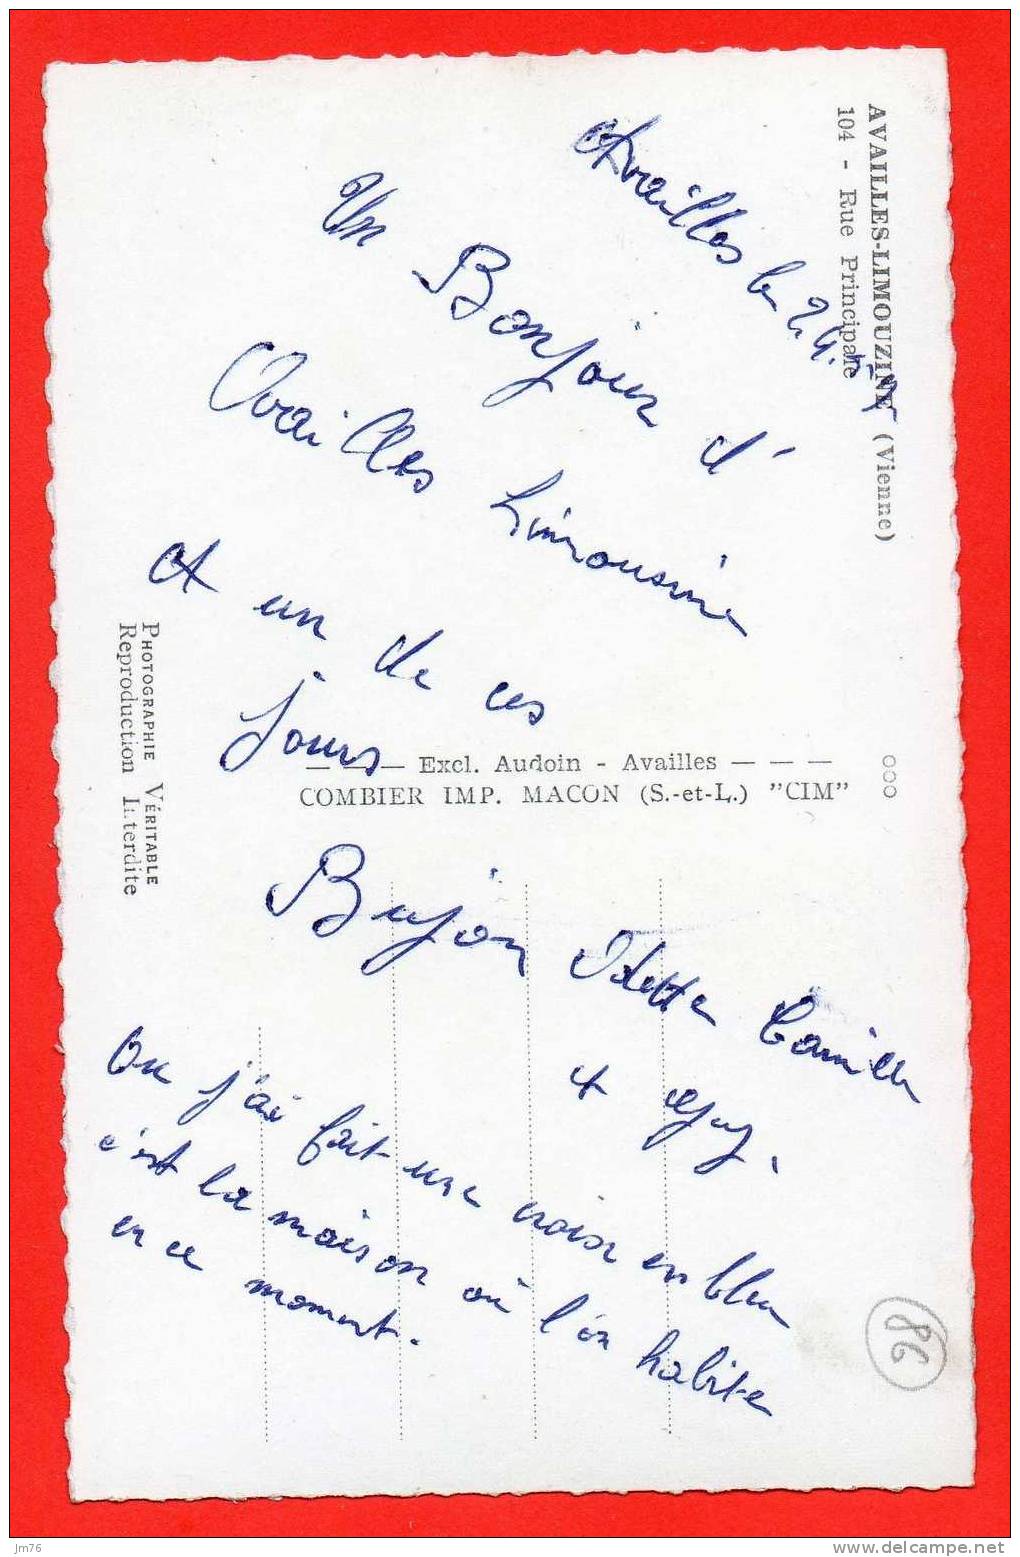 AVAILLES-LIMOUZINE (Vienne)
104 - Rue Principale
Availles le 2.4.
Un Bonjour d'
Availles Limousine
A un de ces
jours
— — — Excl. Audoin - Availles — — —
COMBIER IMP. MACON (S.-et-L.) "CIM"
PHOTOGRAPHIE VÉRITABLE
Reproduction Interdite
Bujon Odette Camille
& Guy.
Ou j'ai fait une croix en bleu
c'est la maison où l'on habite
en ce moment.
86
jm76
www.delcampe.net